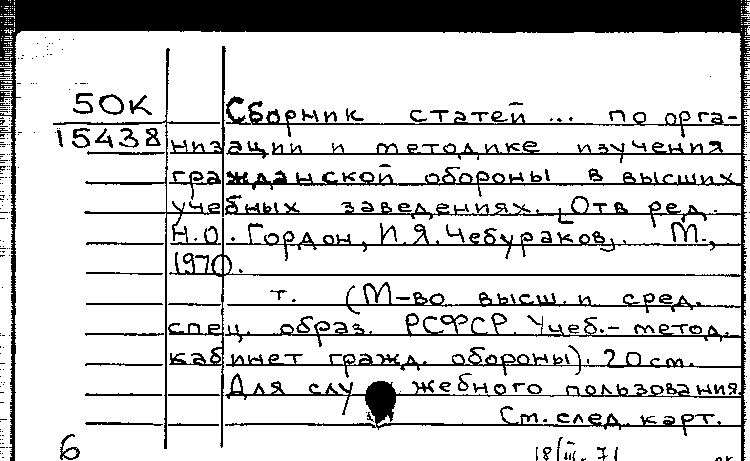 50К
15438
Сборник статей ... по орга-
низации и методике изучения
гражданской обороны в высших
учебных заведениях. [Отв ред.
Н.О. Гордон, И.Я. Чебураков]. М.,
1970.
т. (М-во высш. и сред.
спец. образ. РСФСР. Учеб.-метод.
кабинет гражд. обороны). 20 см.
Для служебного пользования.
См. след. карт.
6
18/III. 71